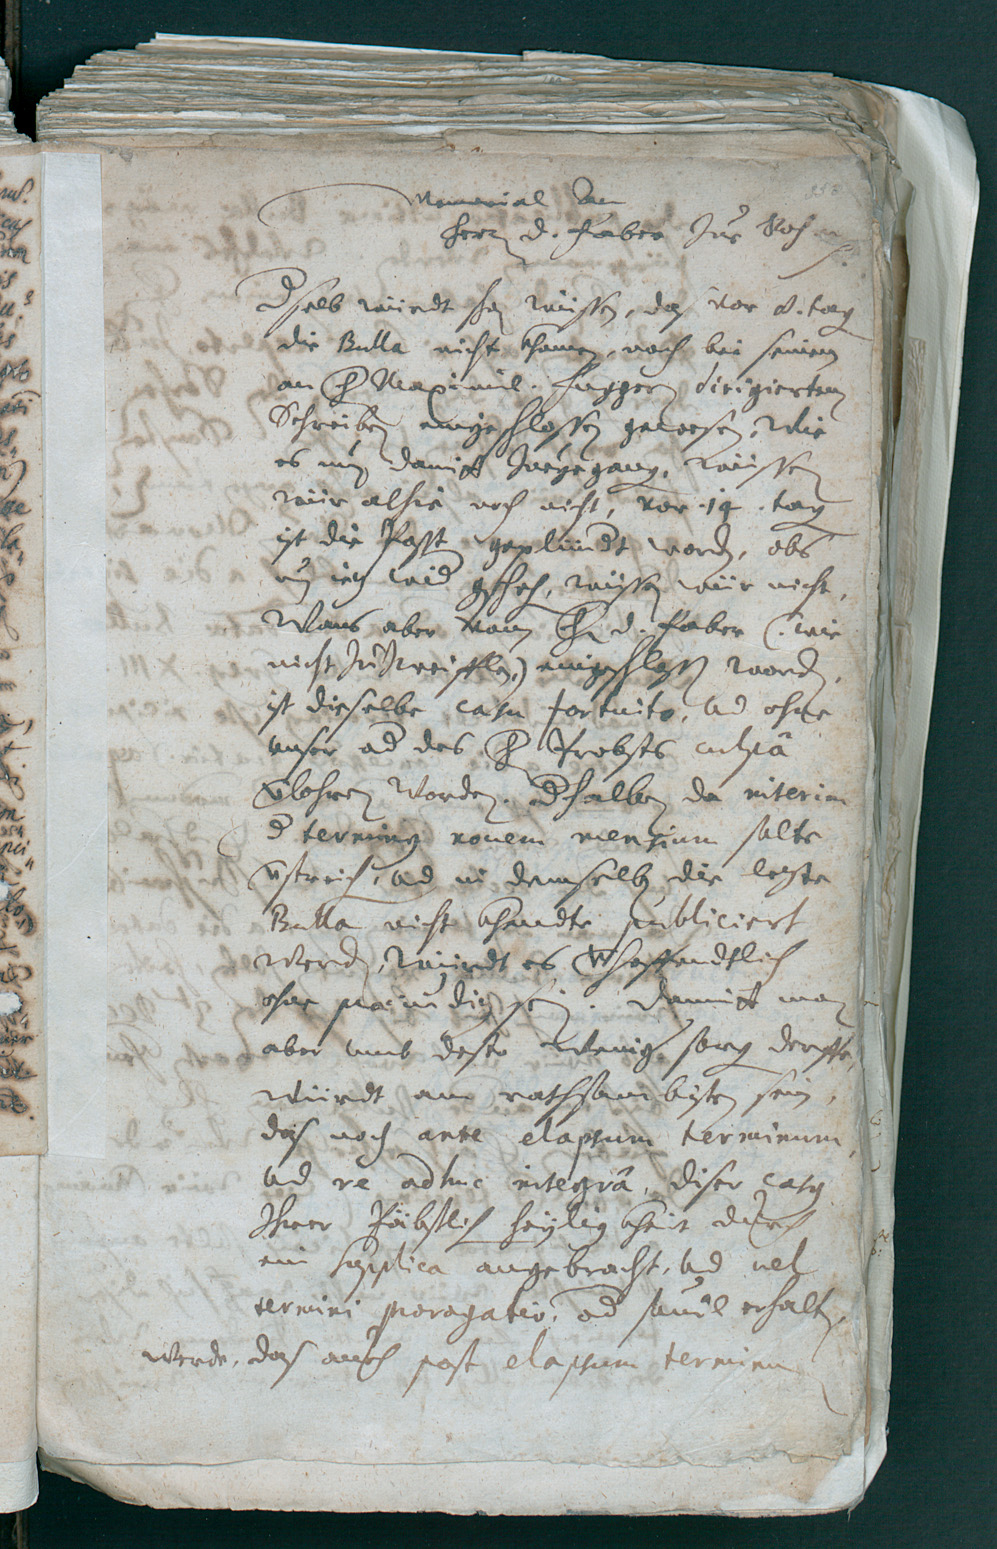 Memorial An
herrn D. Faber zue Rohm
Dselb würdt schon wissen, das vor 8. tag
die Bulla nicht khomen, noch bei seinem
an H Maximil. Fuggern dirigierten
Schreiben eingeschlossen gewesen, Wie
es nun damit zuegegang, wissen
wür alhie noch nicht, vor .14. tag
ist die Posst geplündt worden, obs
nun ietz wid gscheh, wissen wür nicht,
Wans aber vom H. D. Faber (: wie
nicht zu zweifflen:) eingeschlossen worden,
ist dieselbe casu fortuito, ud ohne
unser od des H Probsts culpâ
vlohren worden. Dhalben da interim
d terminus novem mensium solte
vstreich, ud in demselben die leste
Bulla nicht khendte publiciert
werden, würdt es verhoffendtlich
ohne praeiudiz sein. Damit man
aber umb desto wenig sorg derffe,
würdt am rathsambisten sein,
das noch ante elapsum terminum,
ud re adhuc integrâ, diser casus
Ihrer Päbstlich Heylig kheit durch
ein supplica angebracht, ud vel
termini prorogatio, od sovil erhalten
werde, das auch post elapsum terminum